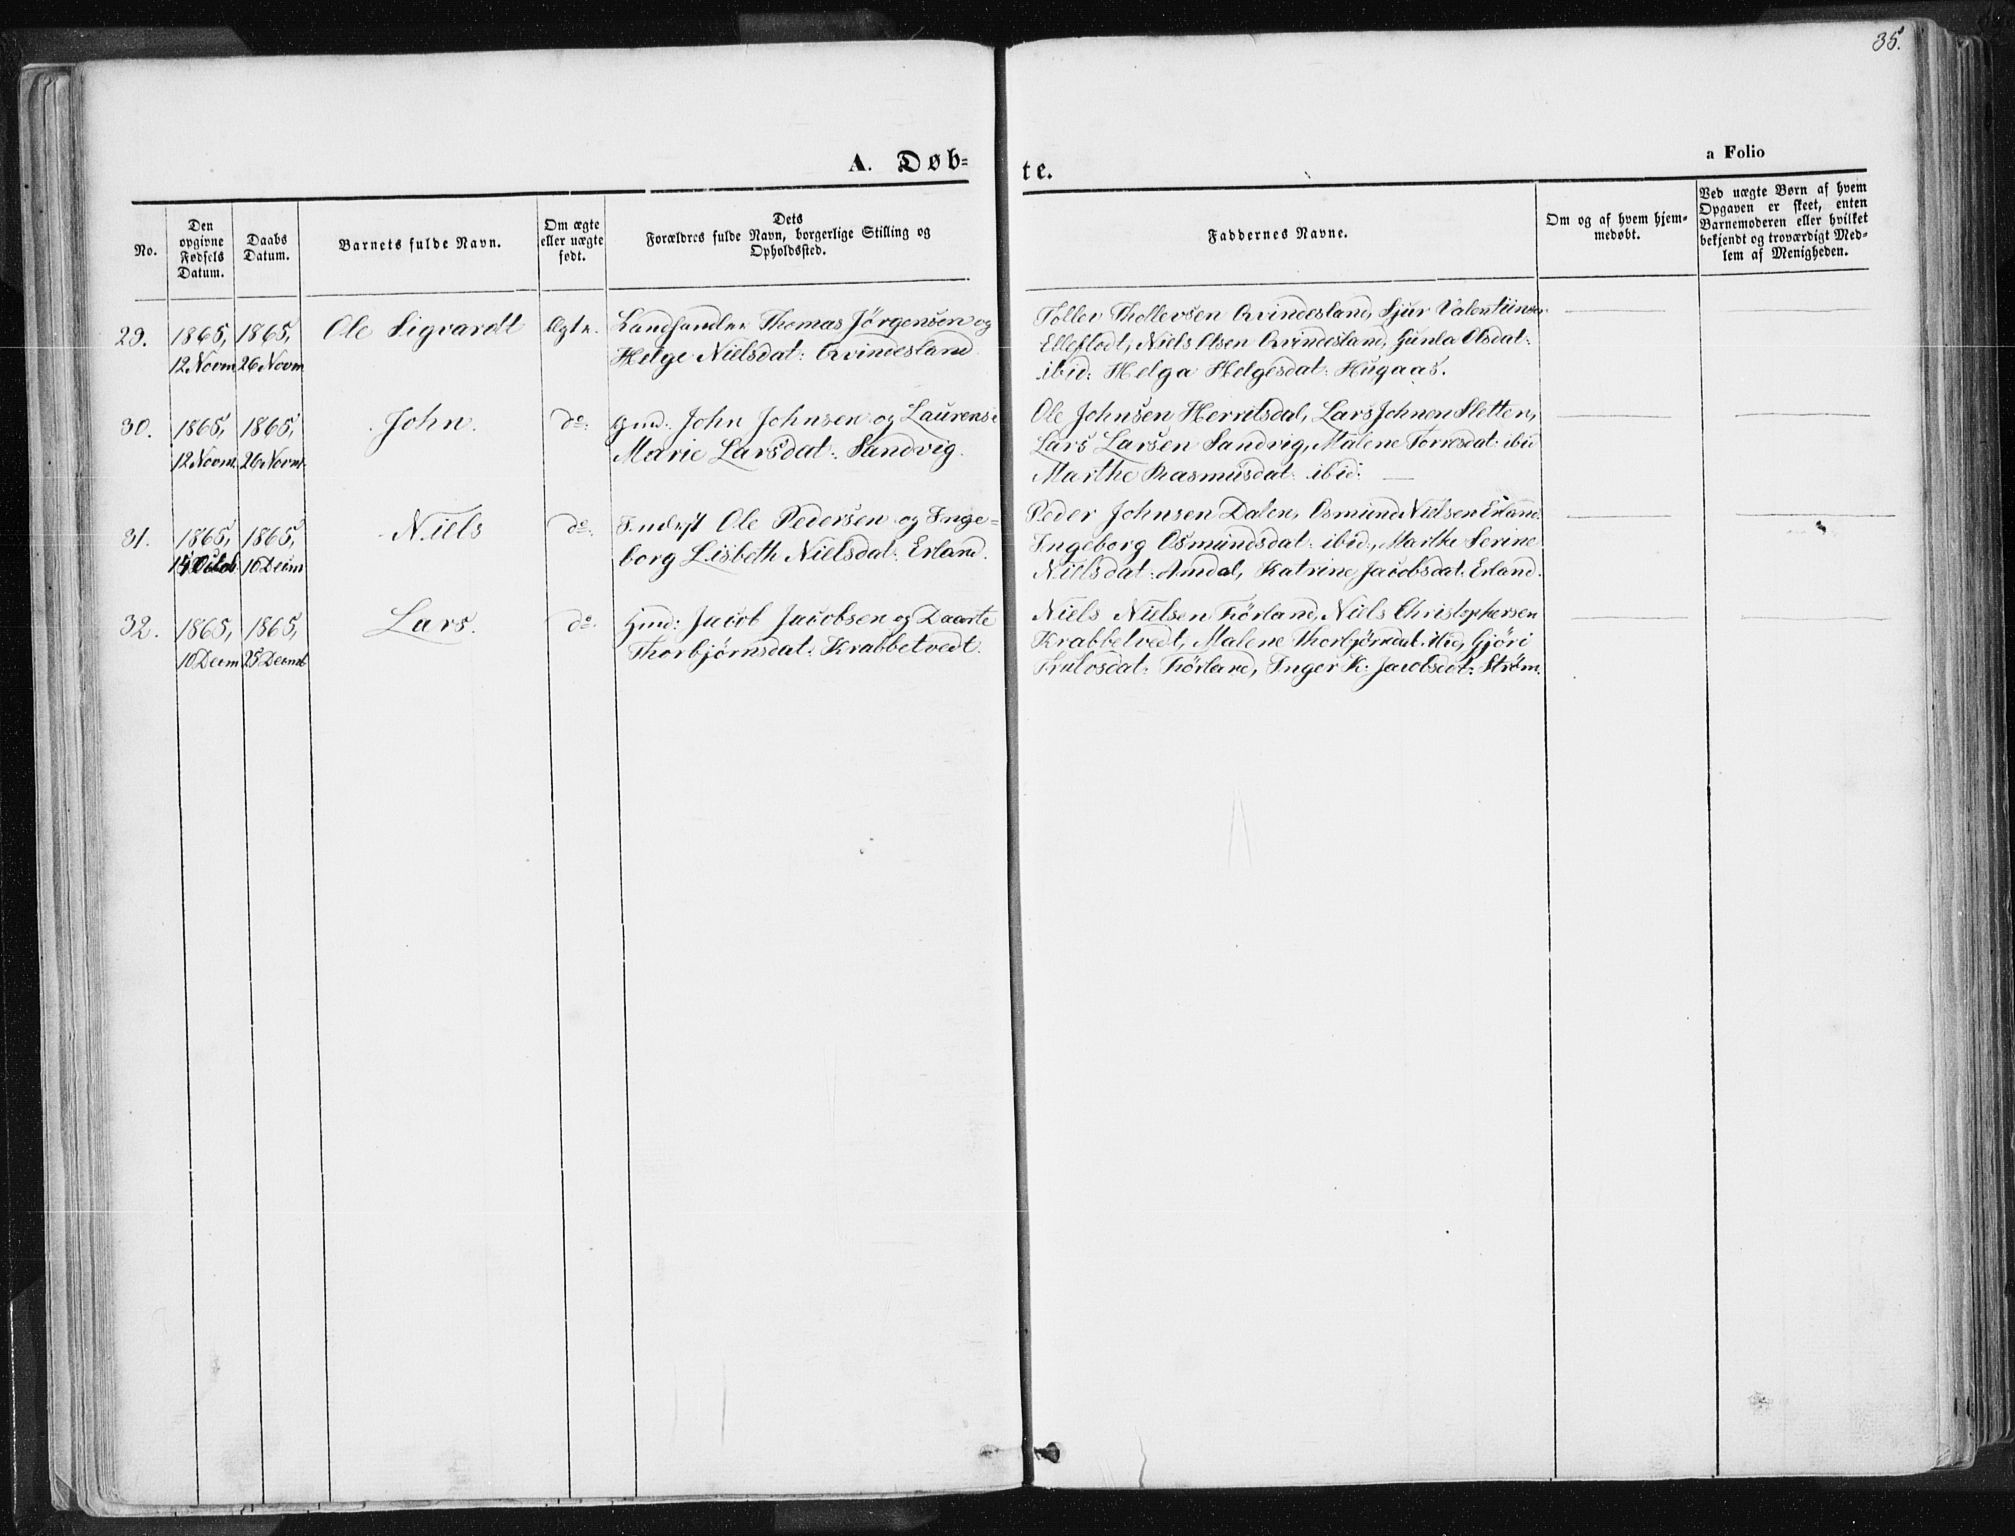 35.
A. Døbte.
a Folio
No.
Den opgivne Fødsels Datum.
Daabs Datum.
Barnets fulde Navn.
Om ægte eller uægte født.
Dets Forældres fulde Navn, borgerlige Stilling og Opholdssted.
Faddernes Navne.
Om og af hvem hjemmedøbt.
Ved uægte Børn af hvem Opgaven er skeet, enten Barnemoderen eller hvilket bekjendt og troværdigt Medlem af Menigheden.
29. 1865, 1865, Ole Sigvardt Ægte. Landhandler Thomas Jørgensen og
12 Novm 26 Novm Helge Nielsdat: Qvindesland
Tollev Thollevsen Qvindesland, Sjur Valentinsen
Elleflodt, Niels Olsen Qvindesland, Gunla Olsdat:
ibid: Helga Helgesdat: Hugaas.
30. 1865, 1865, John. do: Gmd: John Johnsen og Laurense
12 Novm. 26 Novm. Marie Larsdat: Sandvig.
Ole Johnsen Lars Johnsen Sletten,
Lars Larsen Sandvig, Malene Torresdat: ibid
Marthe Rasmusdat: ibid: —
31. 1865, 1865, Niels do: Ole Pedersen og Inge-
10 Decm borg Lisbeth Nielsdat: Erland.
Peder Johnsen Dalen, Osmund Nielsen Erland
Ingeborg Osmundsdat: ibid:, Marthe Serine
Nielsdat: Amdal, Katrine Jacobsdat: Erland.
32. 1865, 1865, Lars. do: Gmd: Jacob Jacobsen og Daarte
10 Decm 25 Decmb Thorbjørnsdat: Krabbetvedt.
Niels Nielsen Tiörland, Niels Christophersen
Krabbetvedt, Malene Thorbjörnsdat: ibid, Gjöri
Tiörland, Inger K: Jacobsdat: Ström.